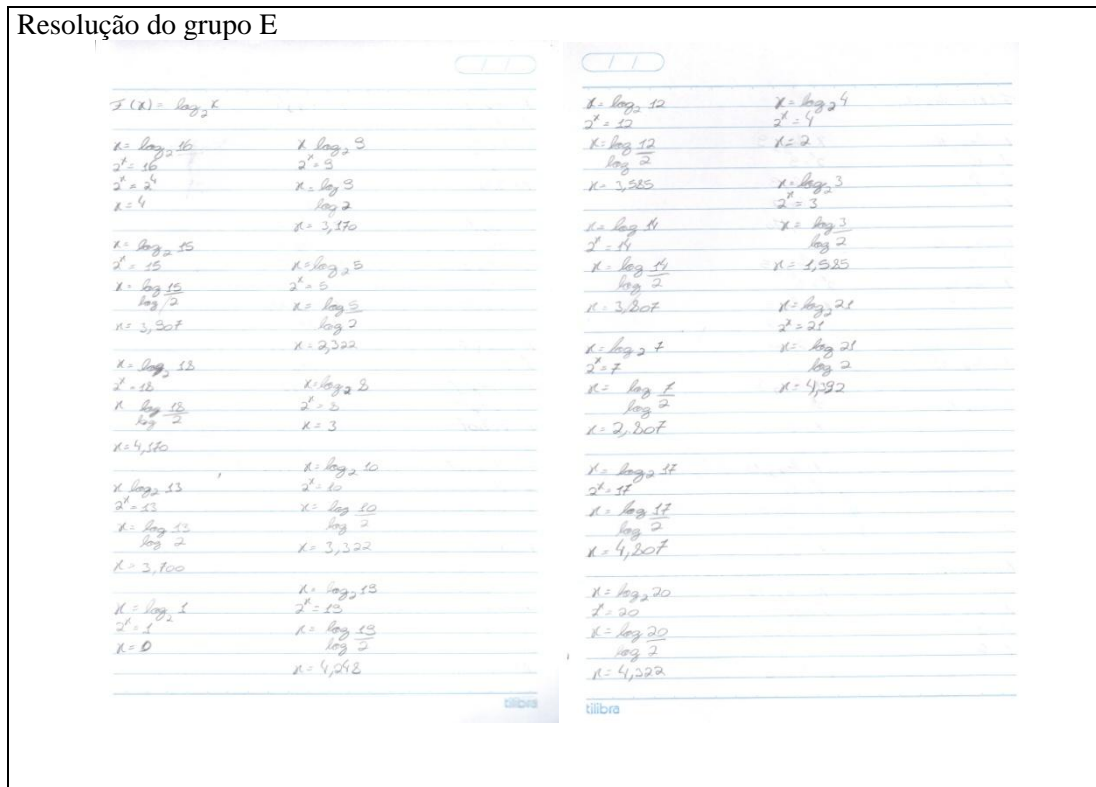 Resolução do grupo E
F(x) = log₂ x
x = log₂ 16
2ˣ = 16
2ˣ = 2⁴
x = 4
x = log₂ 15
2ˣ = 15
x = log 15
log 2
x = 3,907
x = log₂ 18
2ˣ = 18
x log 18
log 2
x = 4,170
x log₂ 13
2ˣ = 13
x = log 13
log 2
x = 3,700
x = log₂ 1
2ˣ = 1
x = 0
x log₂ 9
2ˣ = 9
x = log 9
log 2
x = 3,170
x = log₂ 5
2ˣ = 5
x = log 5
log 2
x = 2,322
x = log₂ 8
2ˣ = 8
x = 3
x = log₂ 10
2ˣ = 10
x = log 10
log 2
x = 3,322
x = log₂ 19
2ˣ = 19
x = log 19
log 2
x = 4,248
tilibra
x = log₂ 12
2ˣ = 12
x = log 12
log 2
x = 3,585
x = log 14
2ˣ = 14
x = log 14
log 2
x = 3,807
x = log₂ 7
2ˣ = 7
x = log 7
log 2
x = 2,807
x = log₂ 17
2ˣ = 17
x = log 17
log 2
x = 4,807
x = log₂ 20
2ˣ = 20
x = log 20
log 2
x = 4,322
x = log₂ 4
2ˣ = 4
x = 2
x = log₂ 3
2ˣ = 3
x = log 3
log 2
x = 1,585
x = log₂ 21
2ˣ = 21
x = log 21
log 2
x = 4,392
tilibra